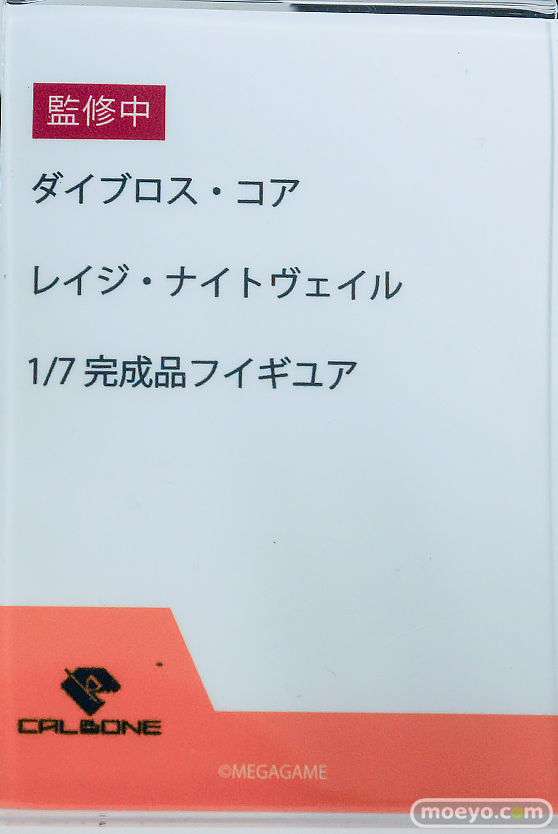 監修中
ダイブロス・コア
レイジ・ナイトヴェイル
1/7 完成品フイギユア
CALBONE
©MEGAGAME
moeyo.com